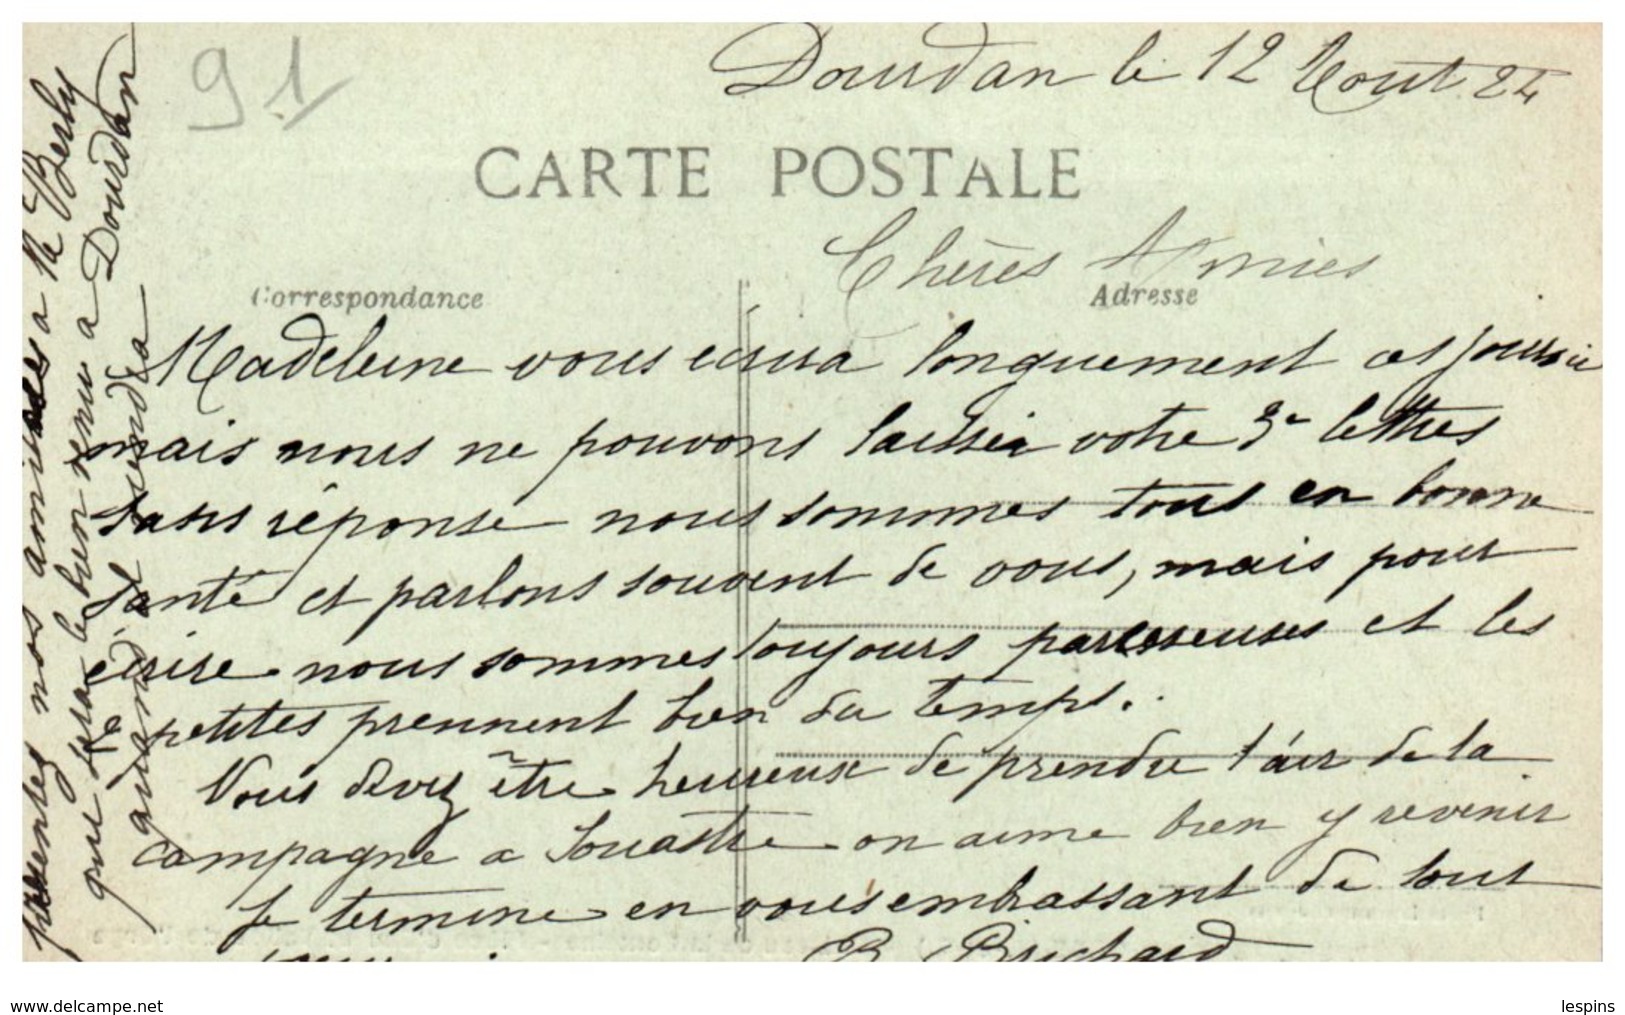 91
Dourdan le 12 Aout 24
CARTE POSTALE
Chères Amies
Correspondance
Adresse
Madeleine vous écrira longuement ces jours ci
mais nous ne pouvons laisser votre 3e lettres
sans réponse nous sommes tous en bonne
santé et parlons souvent de vous, mais pour
écrire nous sommes toujours paresseuses et les
petites prennent bien du temps.
Vous devez être heureux de prendre l'air de la
campagne a Souastre on aime bien y revenir
Je termine en vous embrassant de tout
B. Brichard
présentez nos amitiés a Mr Berly
que sera le bien venu a Dourdan
quand il viendra
www.delcampe.net
lespins